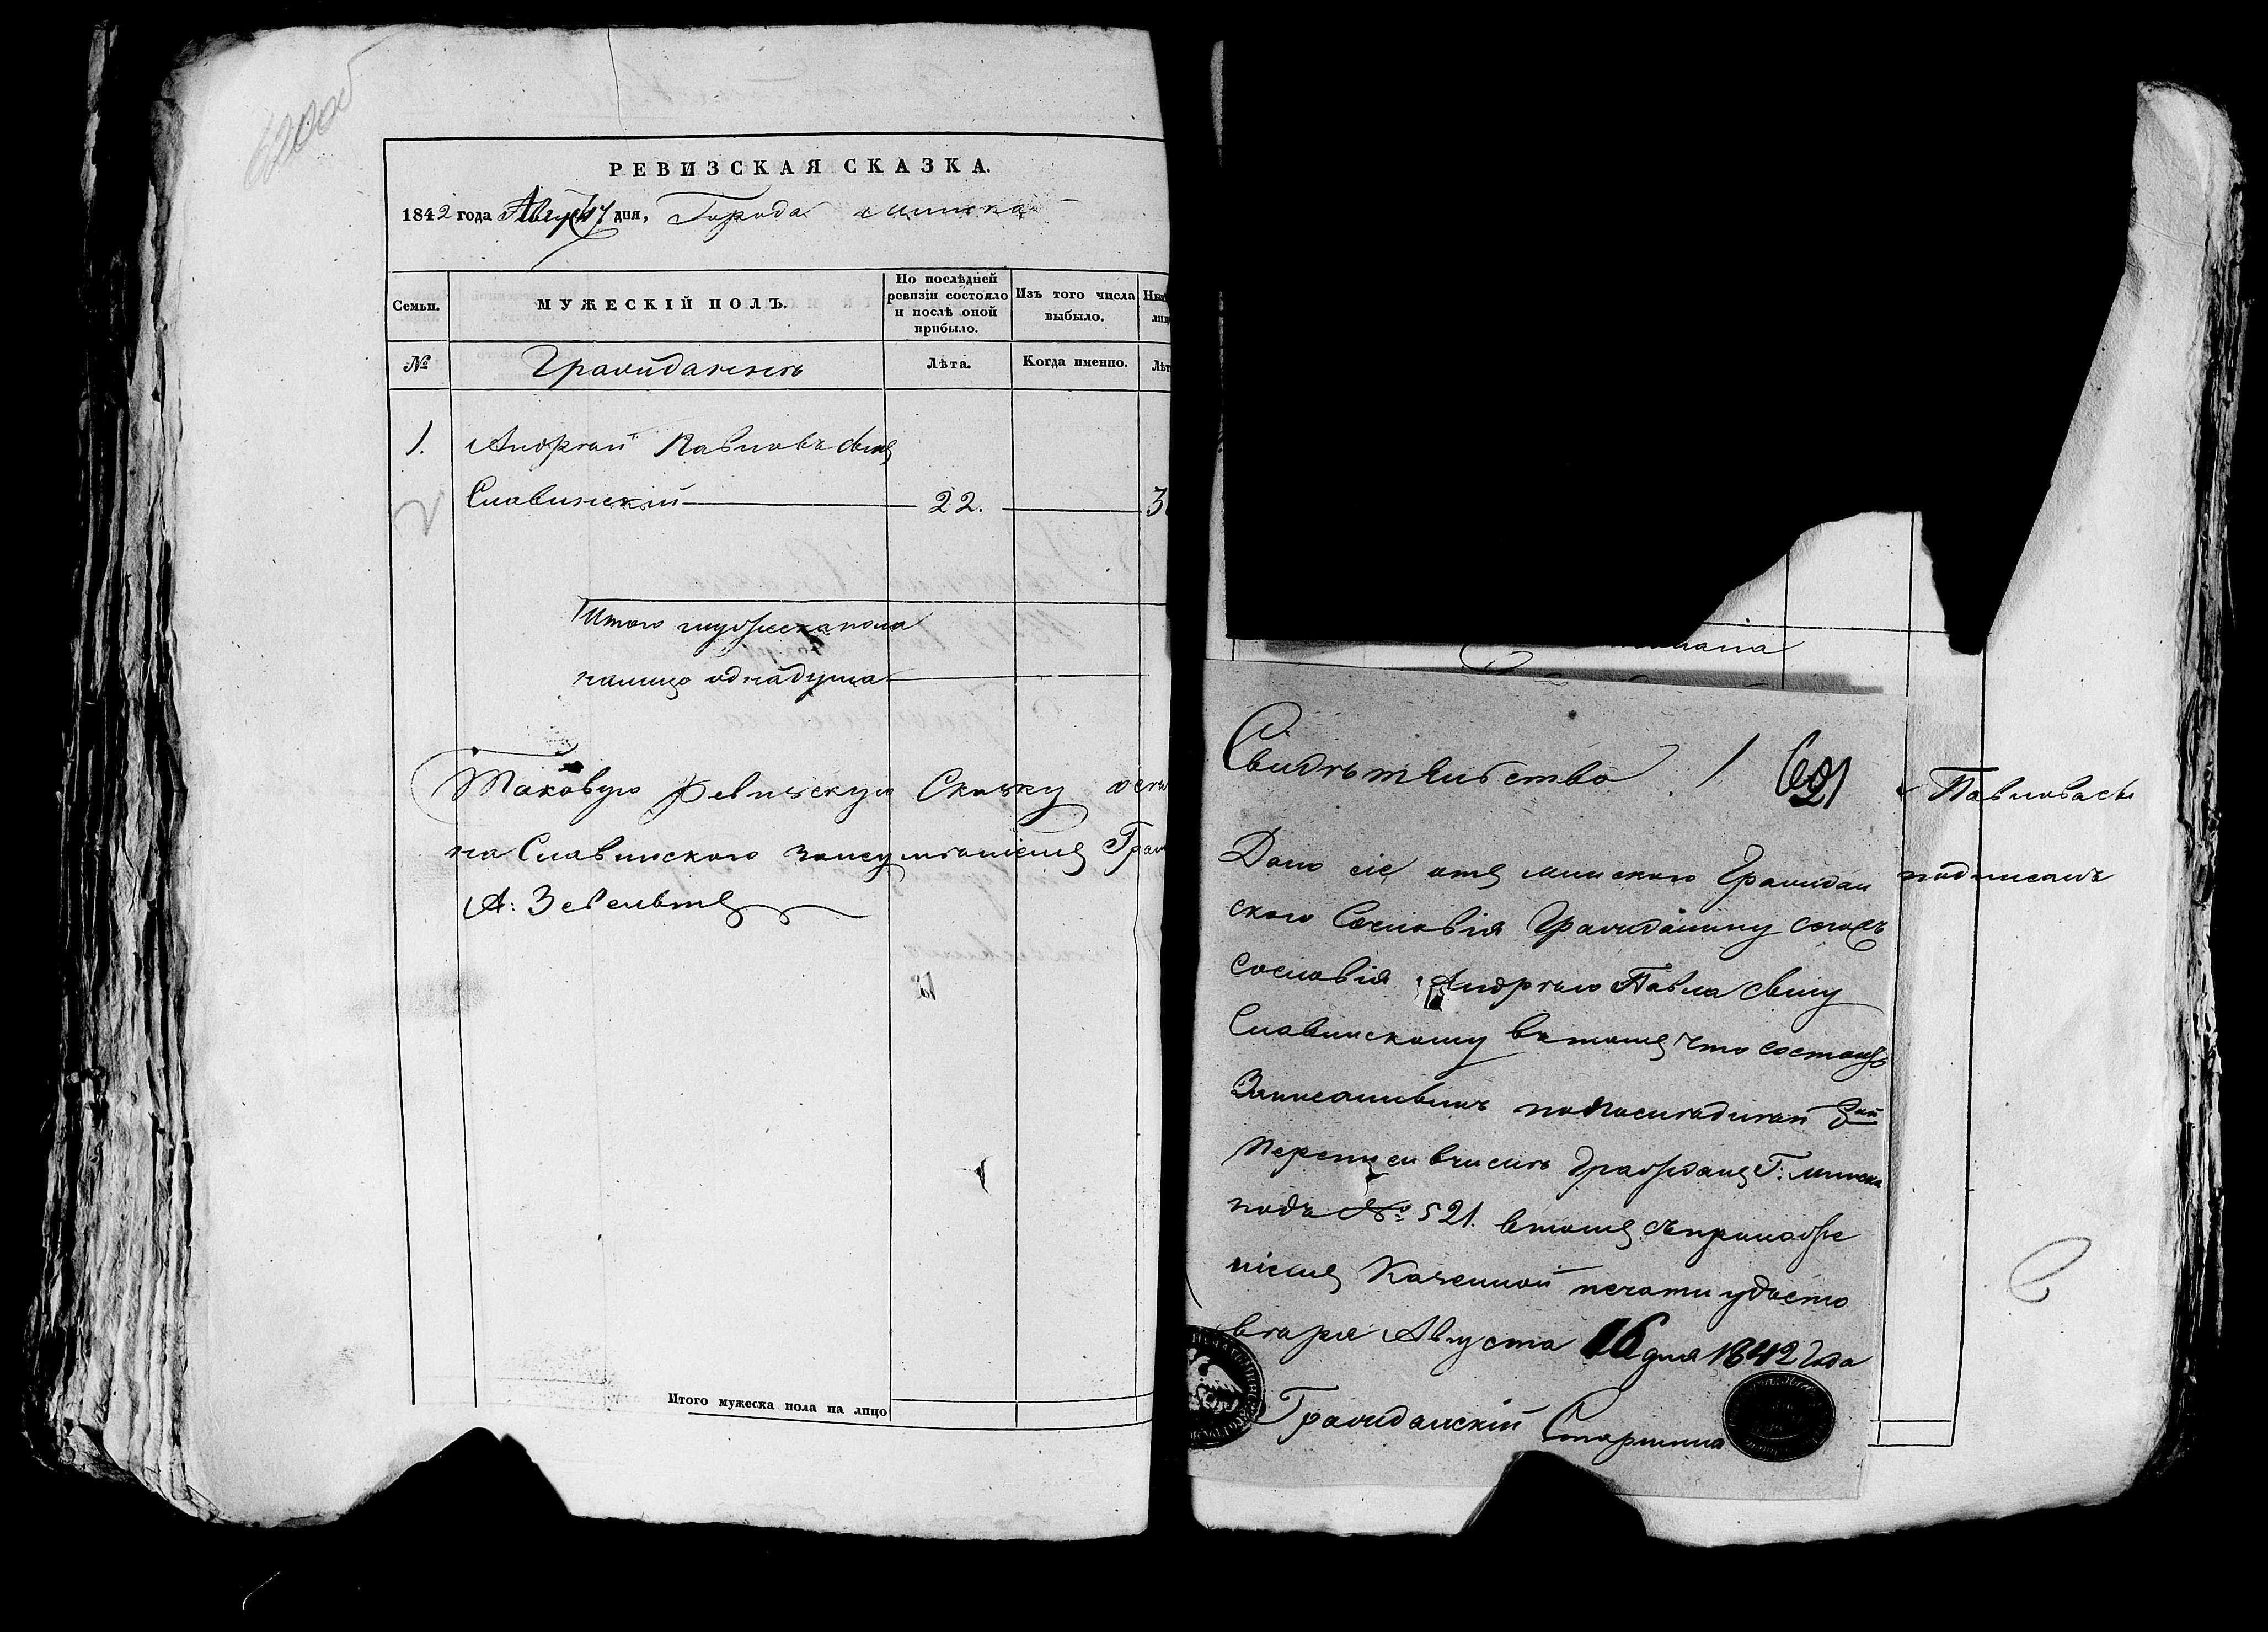 620об
РЕВИЗСКАЯ СКАЗКА.
1842 года Августа 17 дня, Города Минска
Семьи.
МУЖЕСКІЙ ПОЛЪ.
По послѣдней ревизіи состояло и послѣ оной прибыло.
Изъ того числа выбыло.
№
Гражданинъ
Лѣта.
Когда именно.
1. Андрей Павловъ сынъ
Славинскій 22.
Итого мужеска пола
налицо одна душа
Таковую Ревизскую Сказку
на Славинского
А: Зебельтъ
Итого мужеска пола на лицо
Свидѣтельство 1 621
Дано сіе отъ Минского Граждан
ского Сословія Гражданину сегожъ
Сословія Андрею Павла сыну
Славинскому въ томъ что состоитъ
Записанымъ по 8ой
Переписи въ числѣ Гражданъ Г: Минска
подъ № 521. въ томъ съ приложе
ніемъ Казенной печати удосто
вѣряю Августа 16 дня 1842 Года
Гражданскій Старшина
Павлова сы
подписалъ